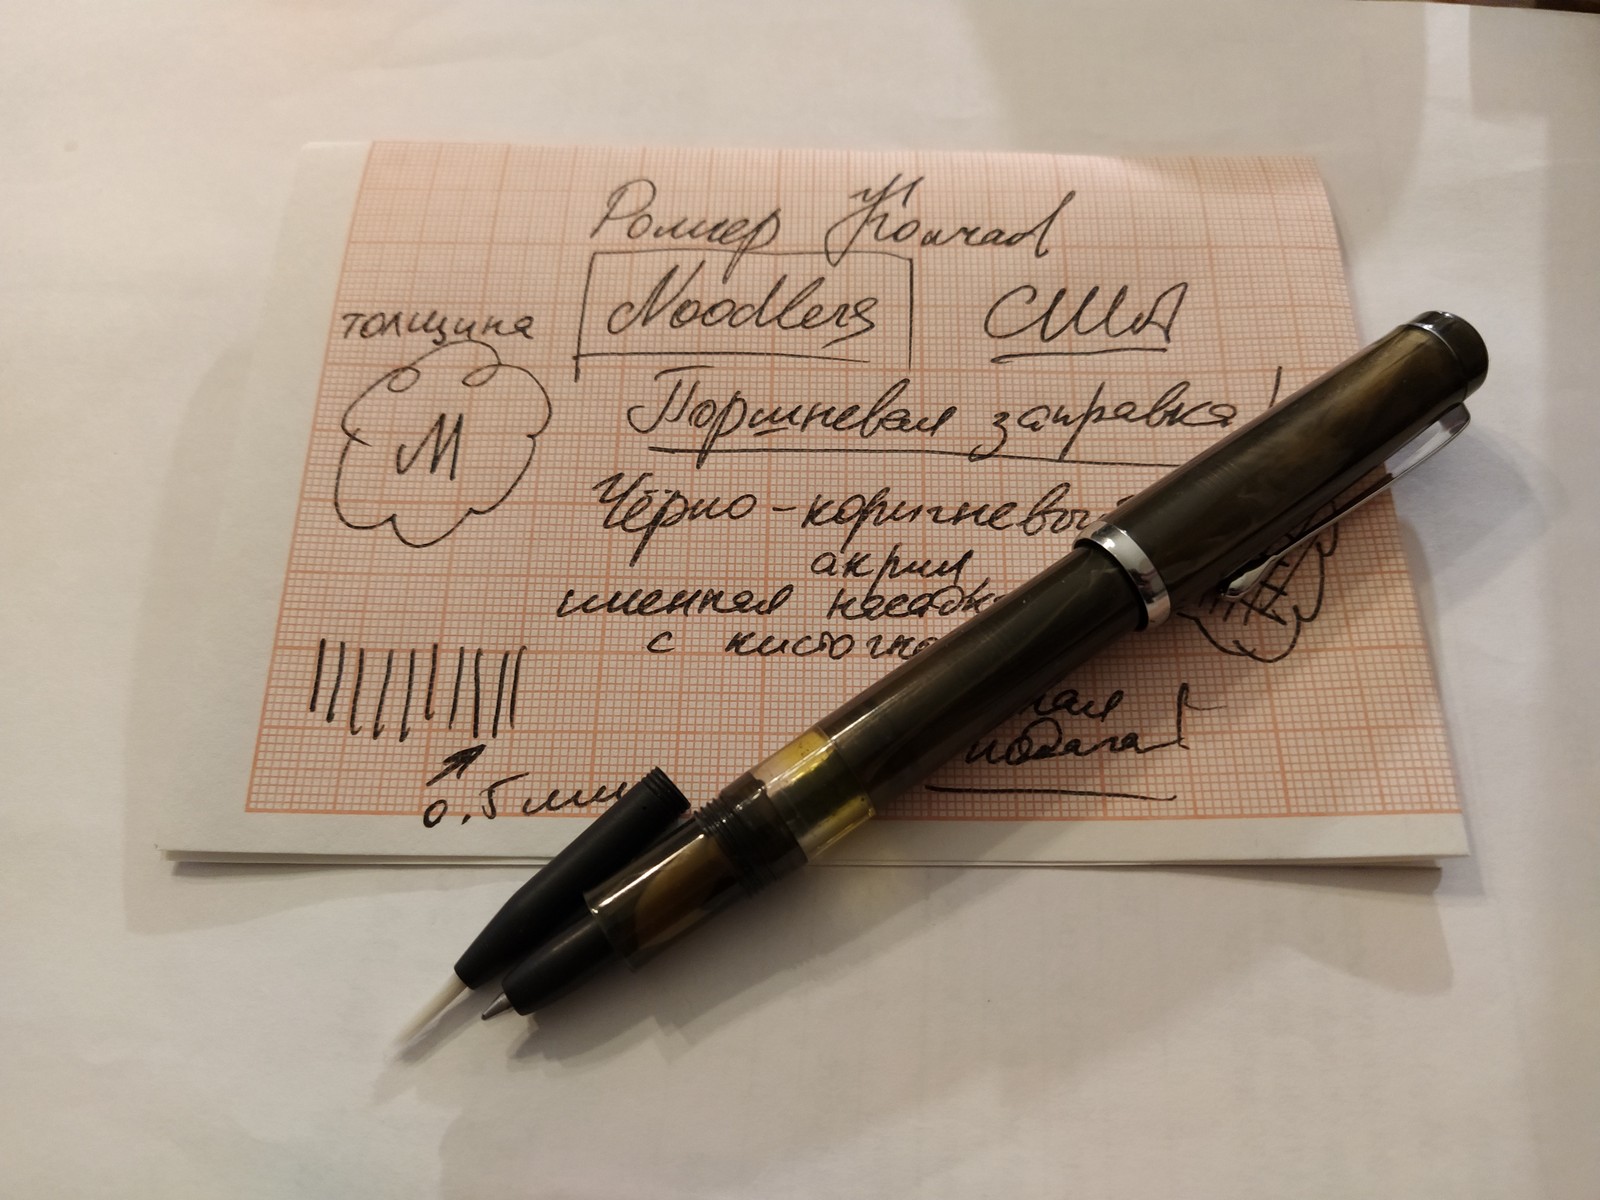 Роллер Кончай
Noodlers США
толщина
М
Поршневая заправка!
Чёрно-коричневы
акрил
именная насадк
с кисточко
ная
подача!
0,5 мм